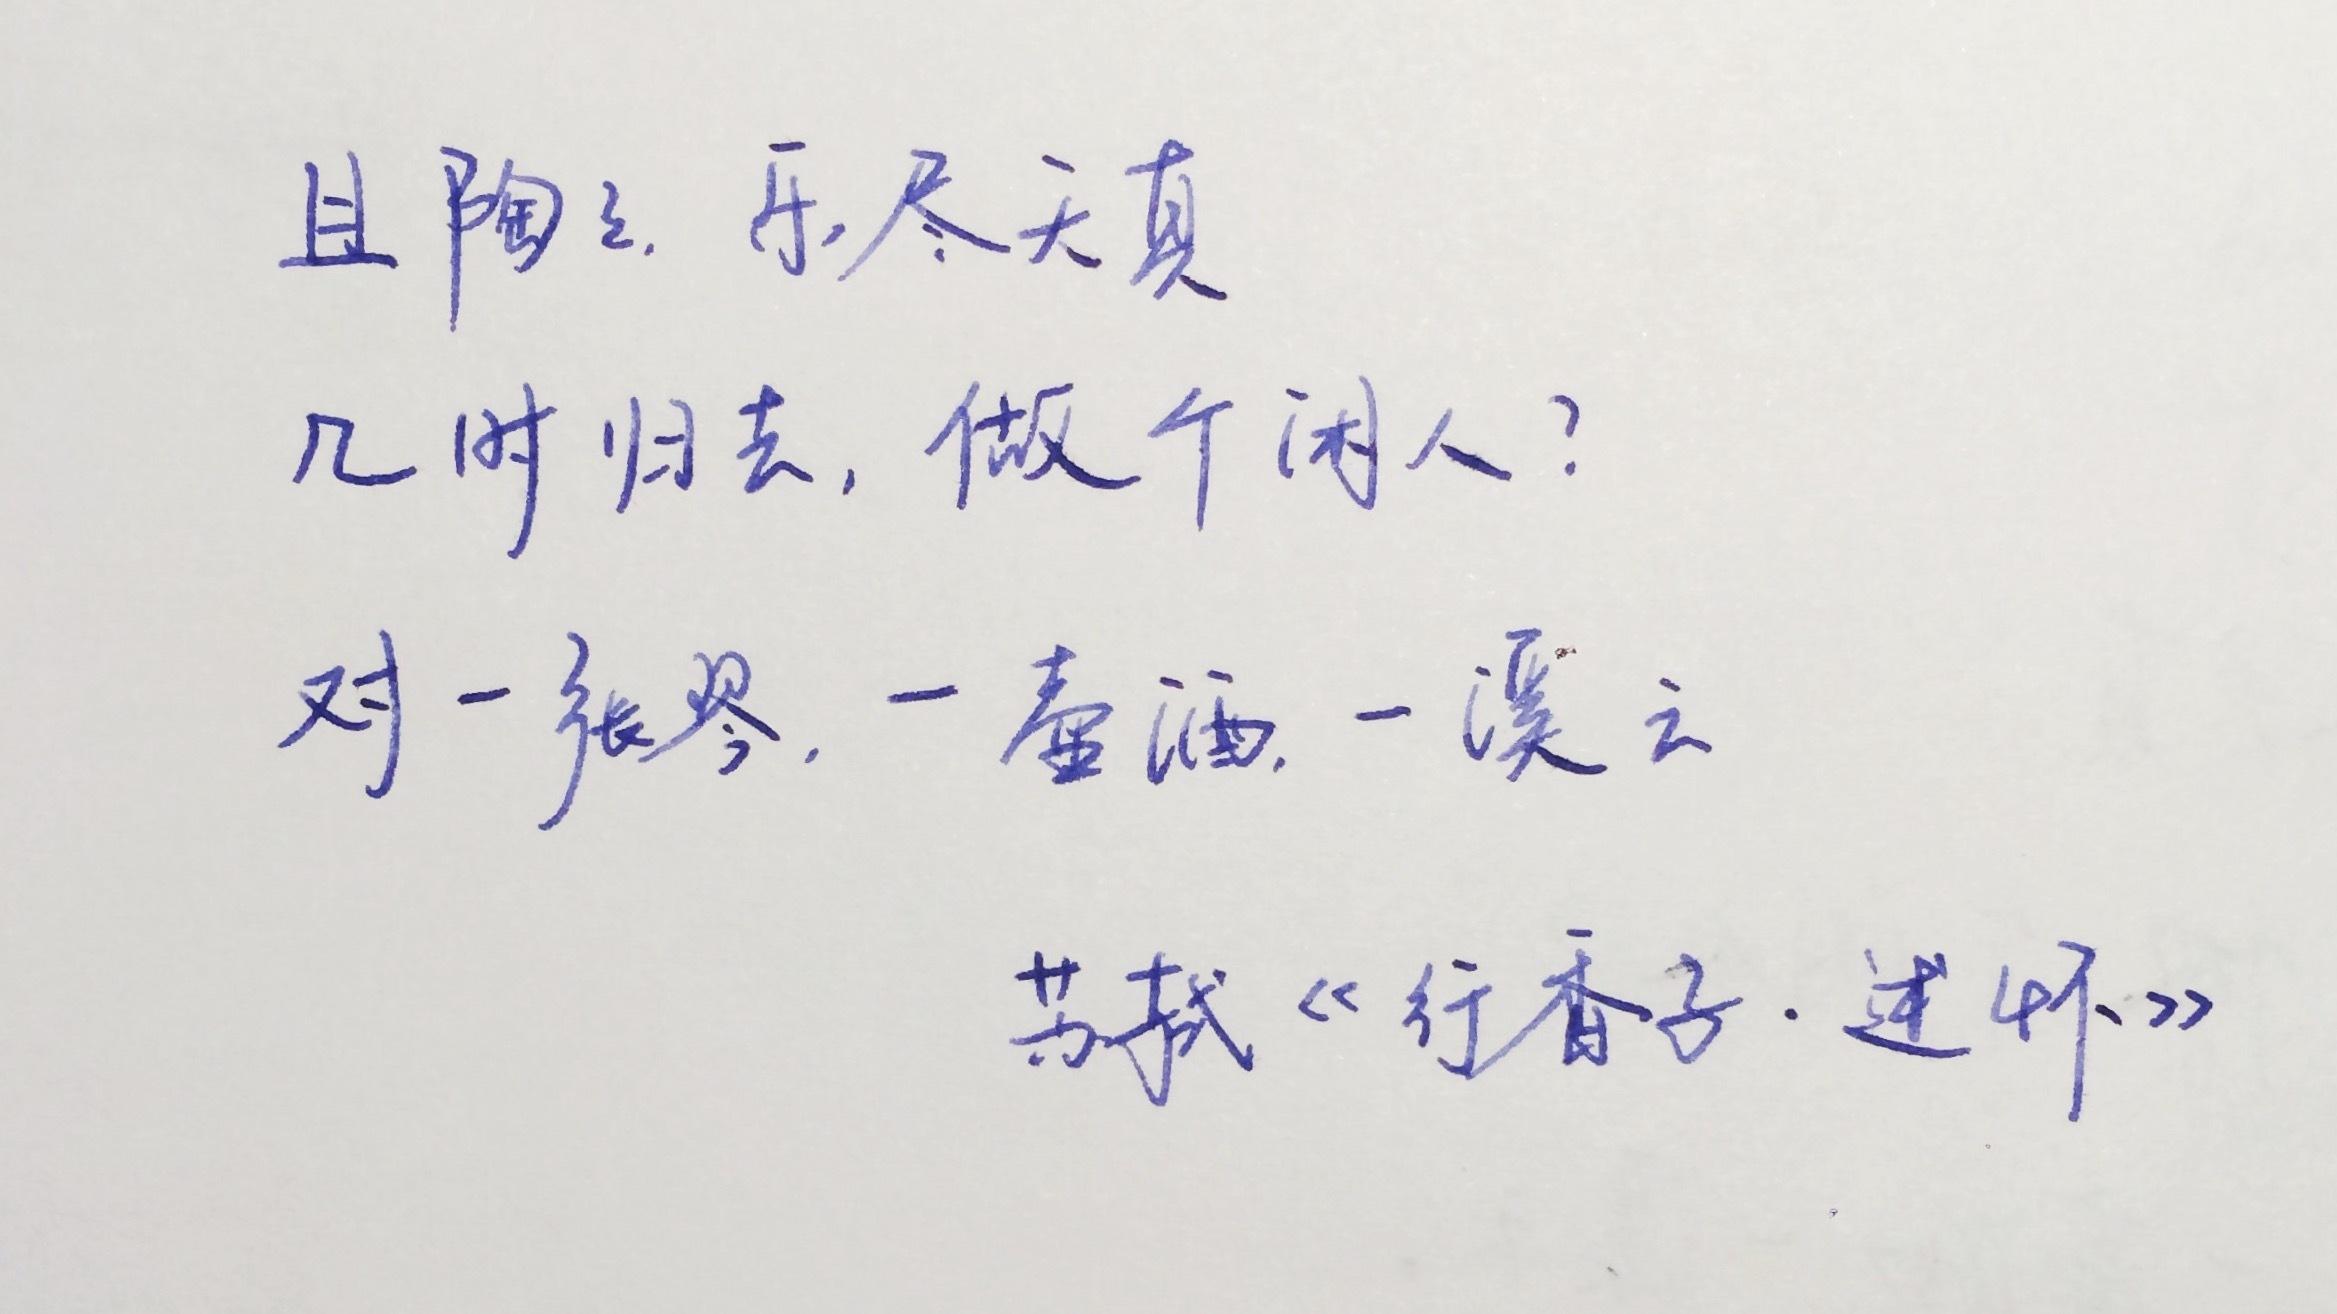 且陶陶、乐尽天真
几时归去，做个闲人？
对一张琴，一壶酒，一溪云
苏轼《行香子·述怀》